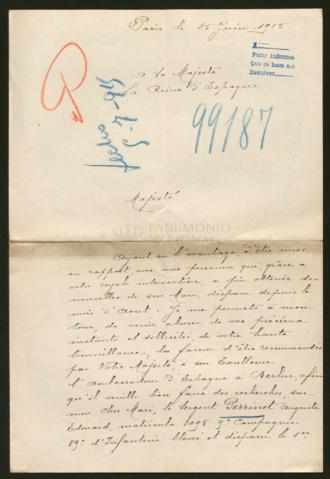 Paris le 15 Juin 1915
A
Pedir informes
Que se hace así
Devolver
A Sa Majesté
La Reine d'Espagne.
99187
Majesté
PATRIMONIO
NACIONAL
Ayant eu l'avantage d'être mise
en rapport avec une personne qui, grâce à
votre royale intervention, a pu obtenir des
nouvelles de son Mari, disparu depuis le
mois d'Aout. Je me permets à mon
tour, de venir abuser de vos précieux
instants et solliciter de votre haute
bienveillance, la faveur d'être recommandée
par Votre Majesté, à son Excellence
l'Ambassadeur d'Espagne à Berlin, afin
qu'il veuille bien faire des recherches sur
mon cher Mari, le Sergent Perrinot Auguste
Edmond, matricule 5095 9e Compagnie
89e d'Infanterie blessé et disparu le 1er